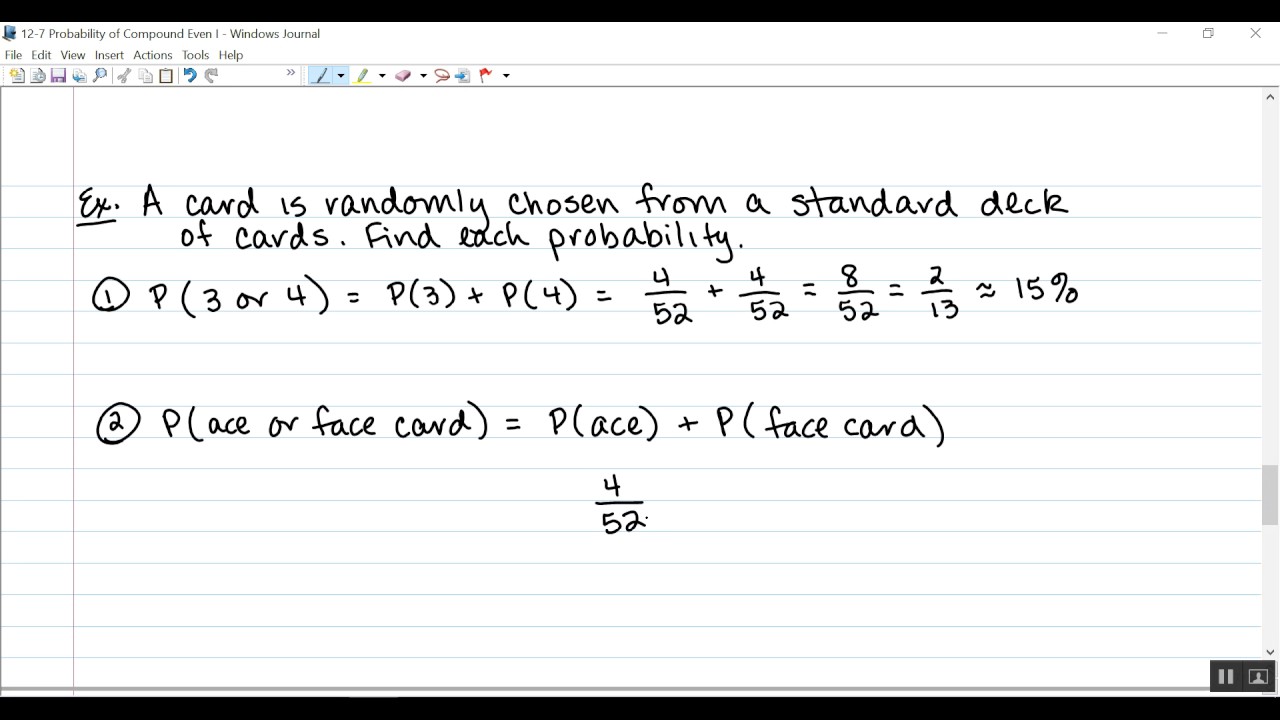 12-7 Probability of Compound Even I - Windows Journal
File Edit View Insert Actions Tools Help
Ex. A card is randomly chosen from a standard deck
of cards. Find each probability.
① P(3 or 4) = P(3) + P(4) = 4/52 + 4/52 = 8/52 = 2/13 ≈ 15%
② P(ace or face card) = P(ace) + P(face card)
4/52